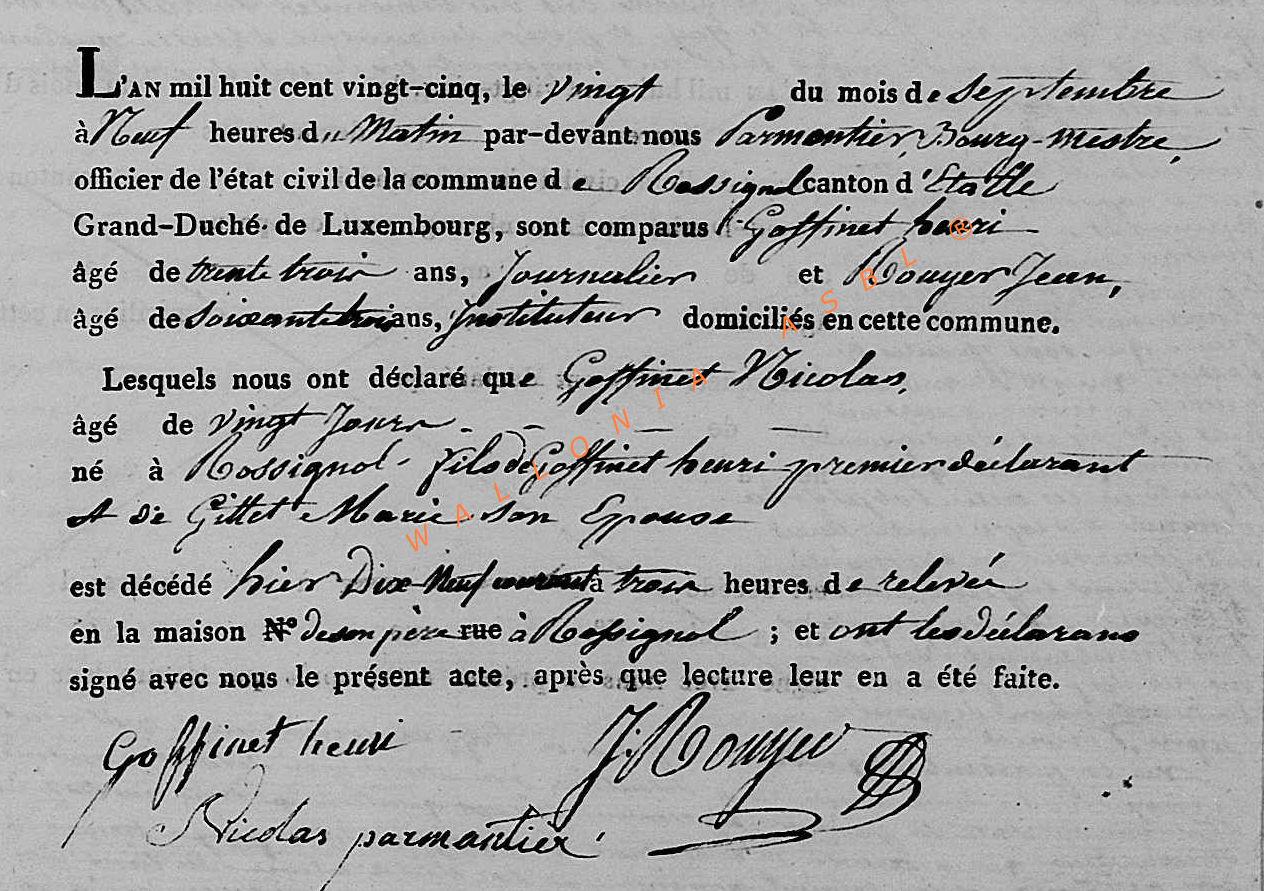 L'AN mil huit cent vingt-cinq, le vingt du mois de Septembre
à Neuf heures du Matin par-devant nous Parmentier, Bourg-mestre,
officier de l'état civil de la commune de Rossignol canton d'Etalle
Grand-Duché de Luxembourg, sont comparus Goffinet henri
âgé de trente trois ans, Journalier et Rouyer Jean,
âgé de Soixante trois ans, Instituteur domiciliés en cette commune.
Lesquels nous ont déclaré que Goffinet Nicolas,
âgé de vingt Jours
né à Rossignol fils de Goffinet henri premier déclarant
et de Gillet Marie son Epouse
est décédé hier Dix-Neuf courant à trois heures de relevée
en la maison N° de son père rue à Rossignol ; et ont les déclarans
signé avec nous le présent acte, après que lecture leur en a été faite.
Goffinet henri J. Rouyer
Nicolas parmantier
WALLONIA ASBL ®